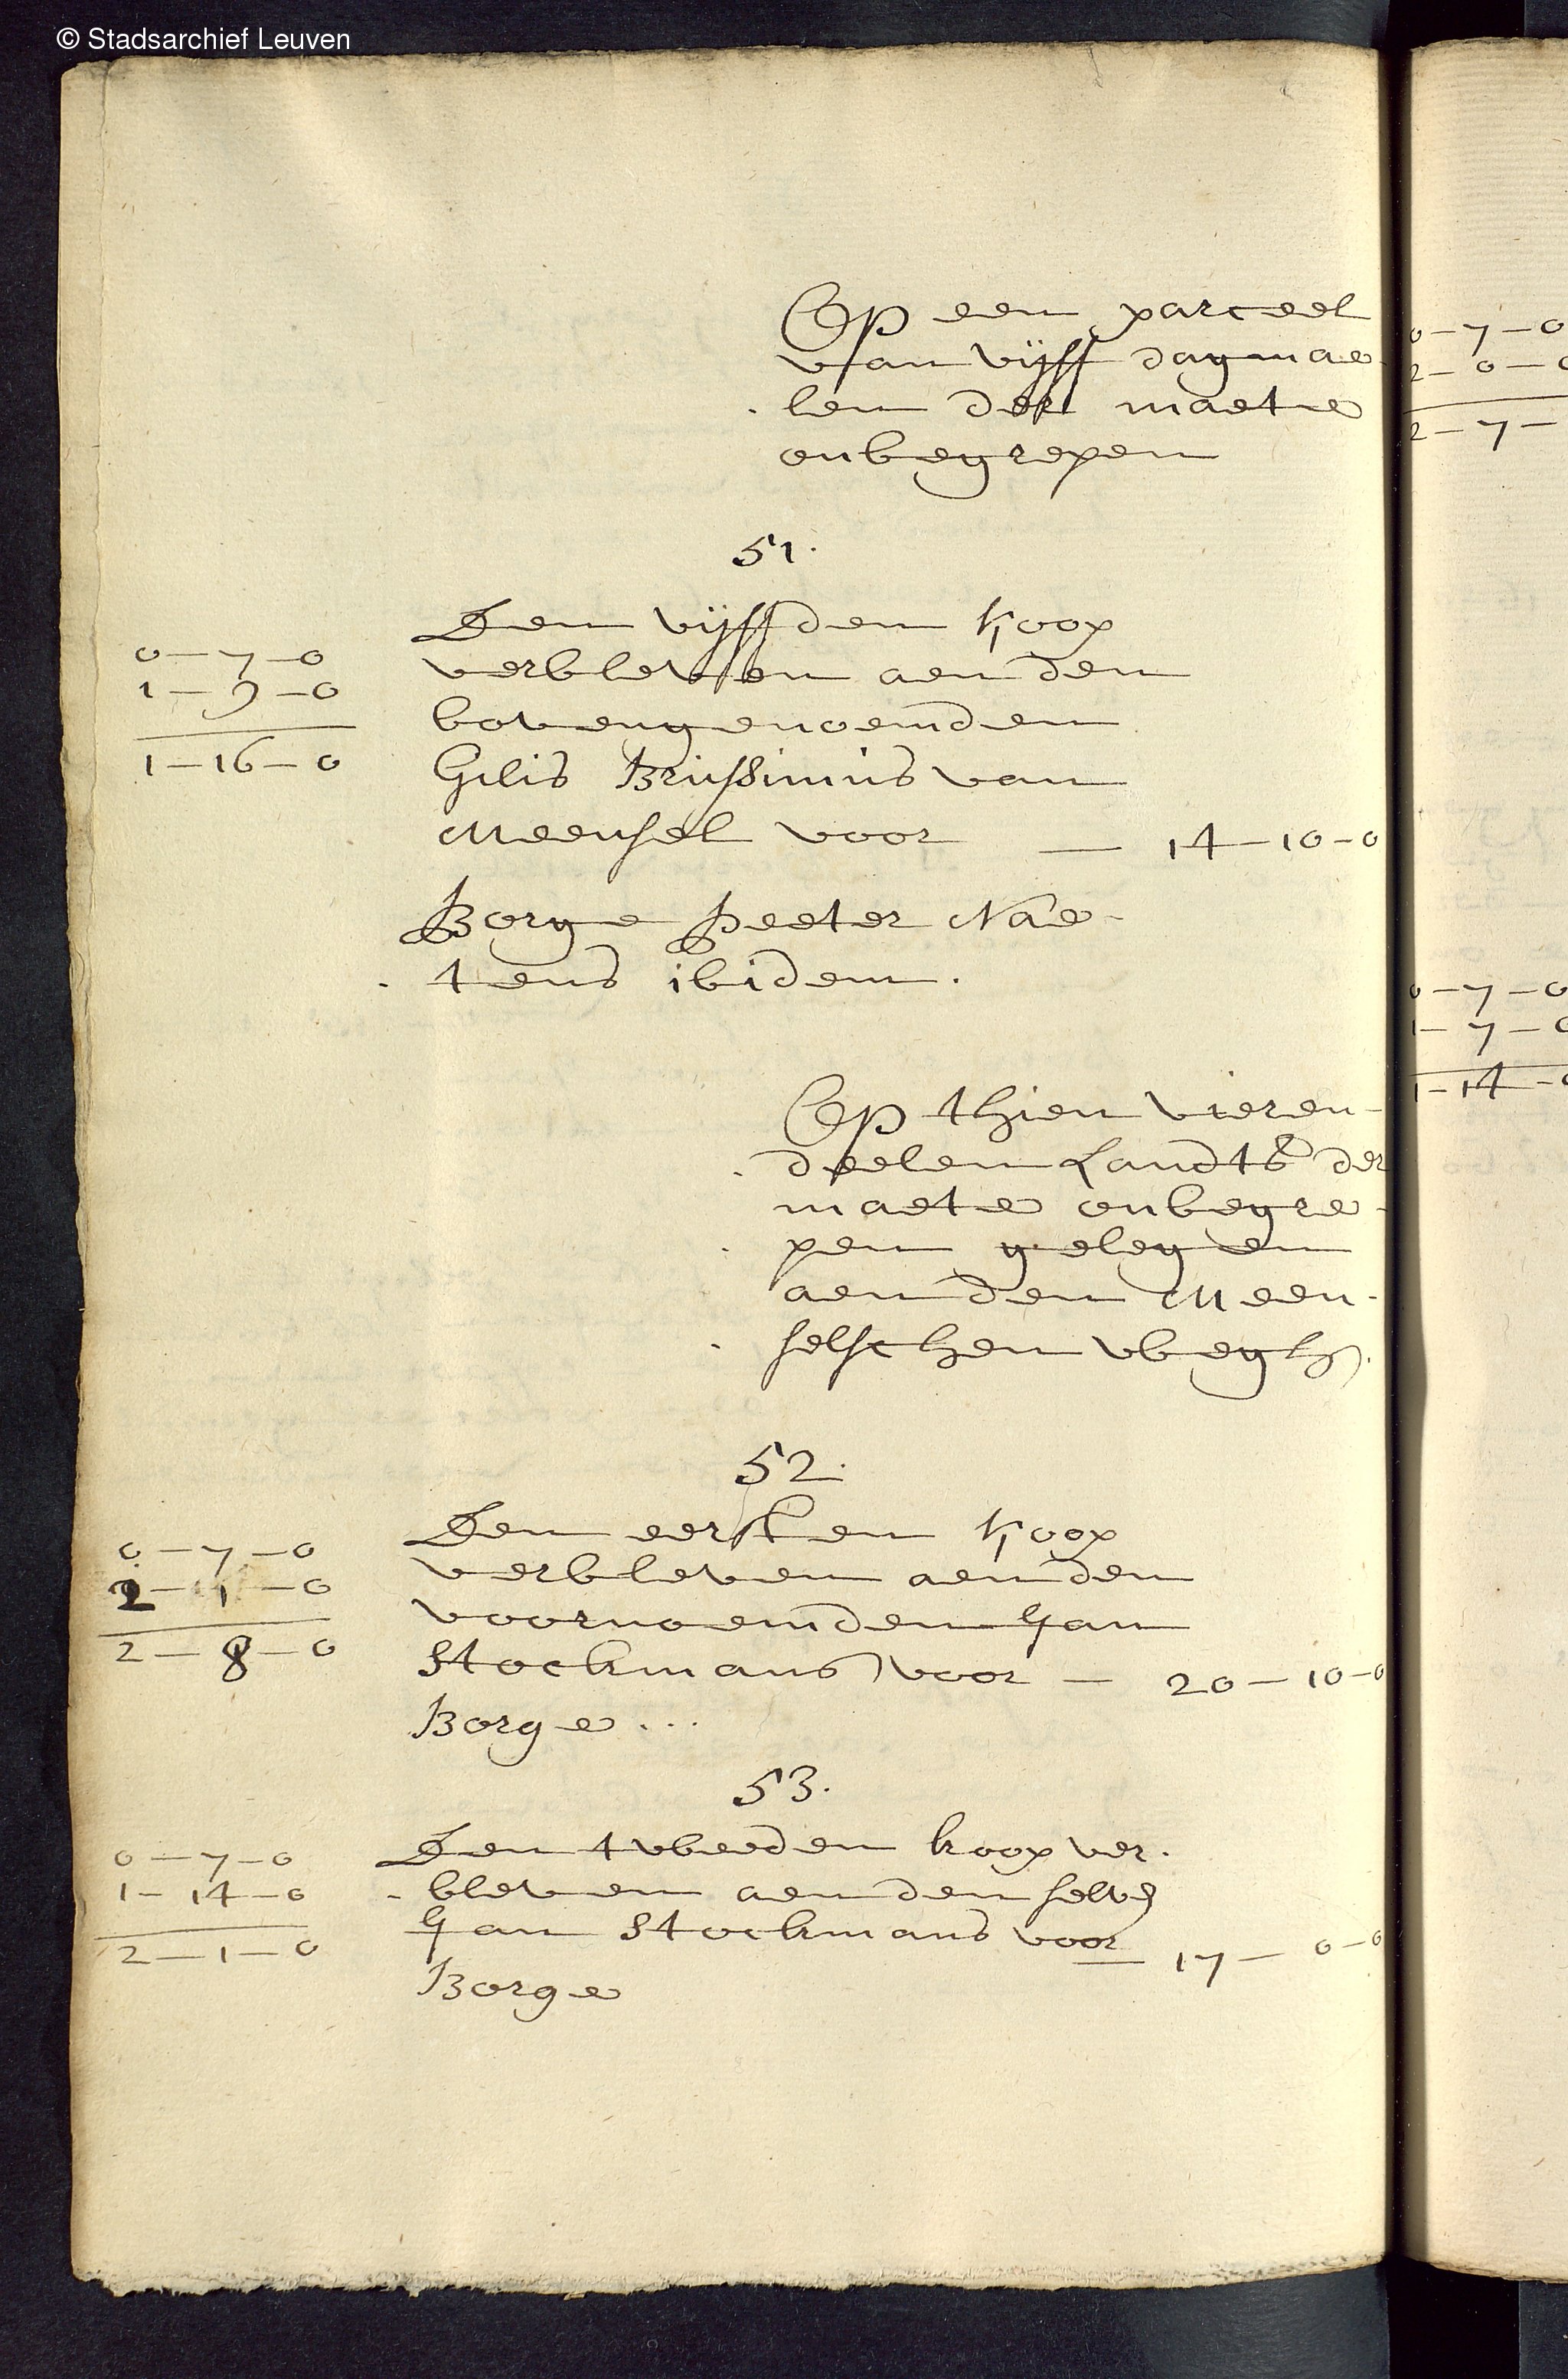 © Stadsarchief Leuven
Op een parceel
van vijff dagmae
len der maete
onbegrepen
51.
Den vijffden koop
0-7-0
verbleven aen den
1-9-0
bovengenoemden
1-16-0
Gilis Brussimus van
Meensel voor — 14-10-0
Borge Peeter Nae-
tens ibidem.
Op thien vieren-
deelen Landts der
maete onbegre
pen gelegen
aen den Meen-
selschen wegh.
52.
Den eersten koop
0-7-0
verbleven aen den
2-1-0
voornoemden Jan
2-8-0
Stockmans voor — 20-10-0
Borge...
53.
Den tweeden koop ver-
0-7-0
bleven aen den selven
1-14-0
Jan Stockmans voor — 17-0-0
2-1-0
Borge
0-7-0
2-0-0
2-7-
0-7-0
1-7-0
1-14-0